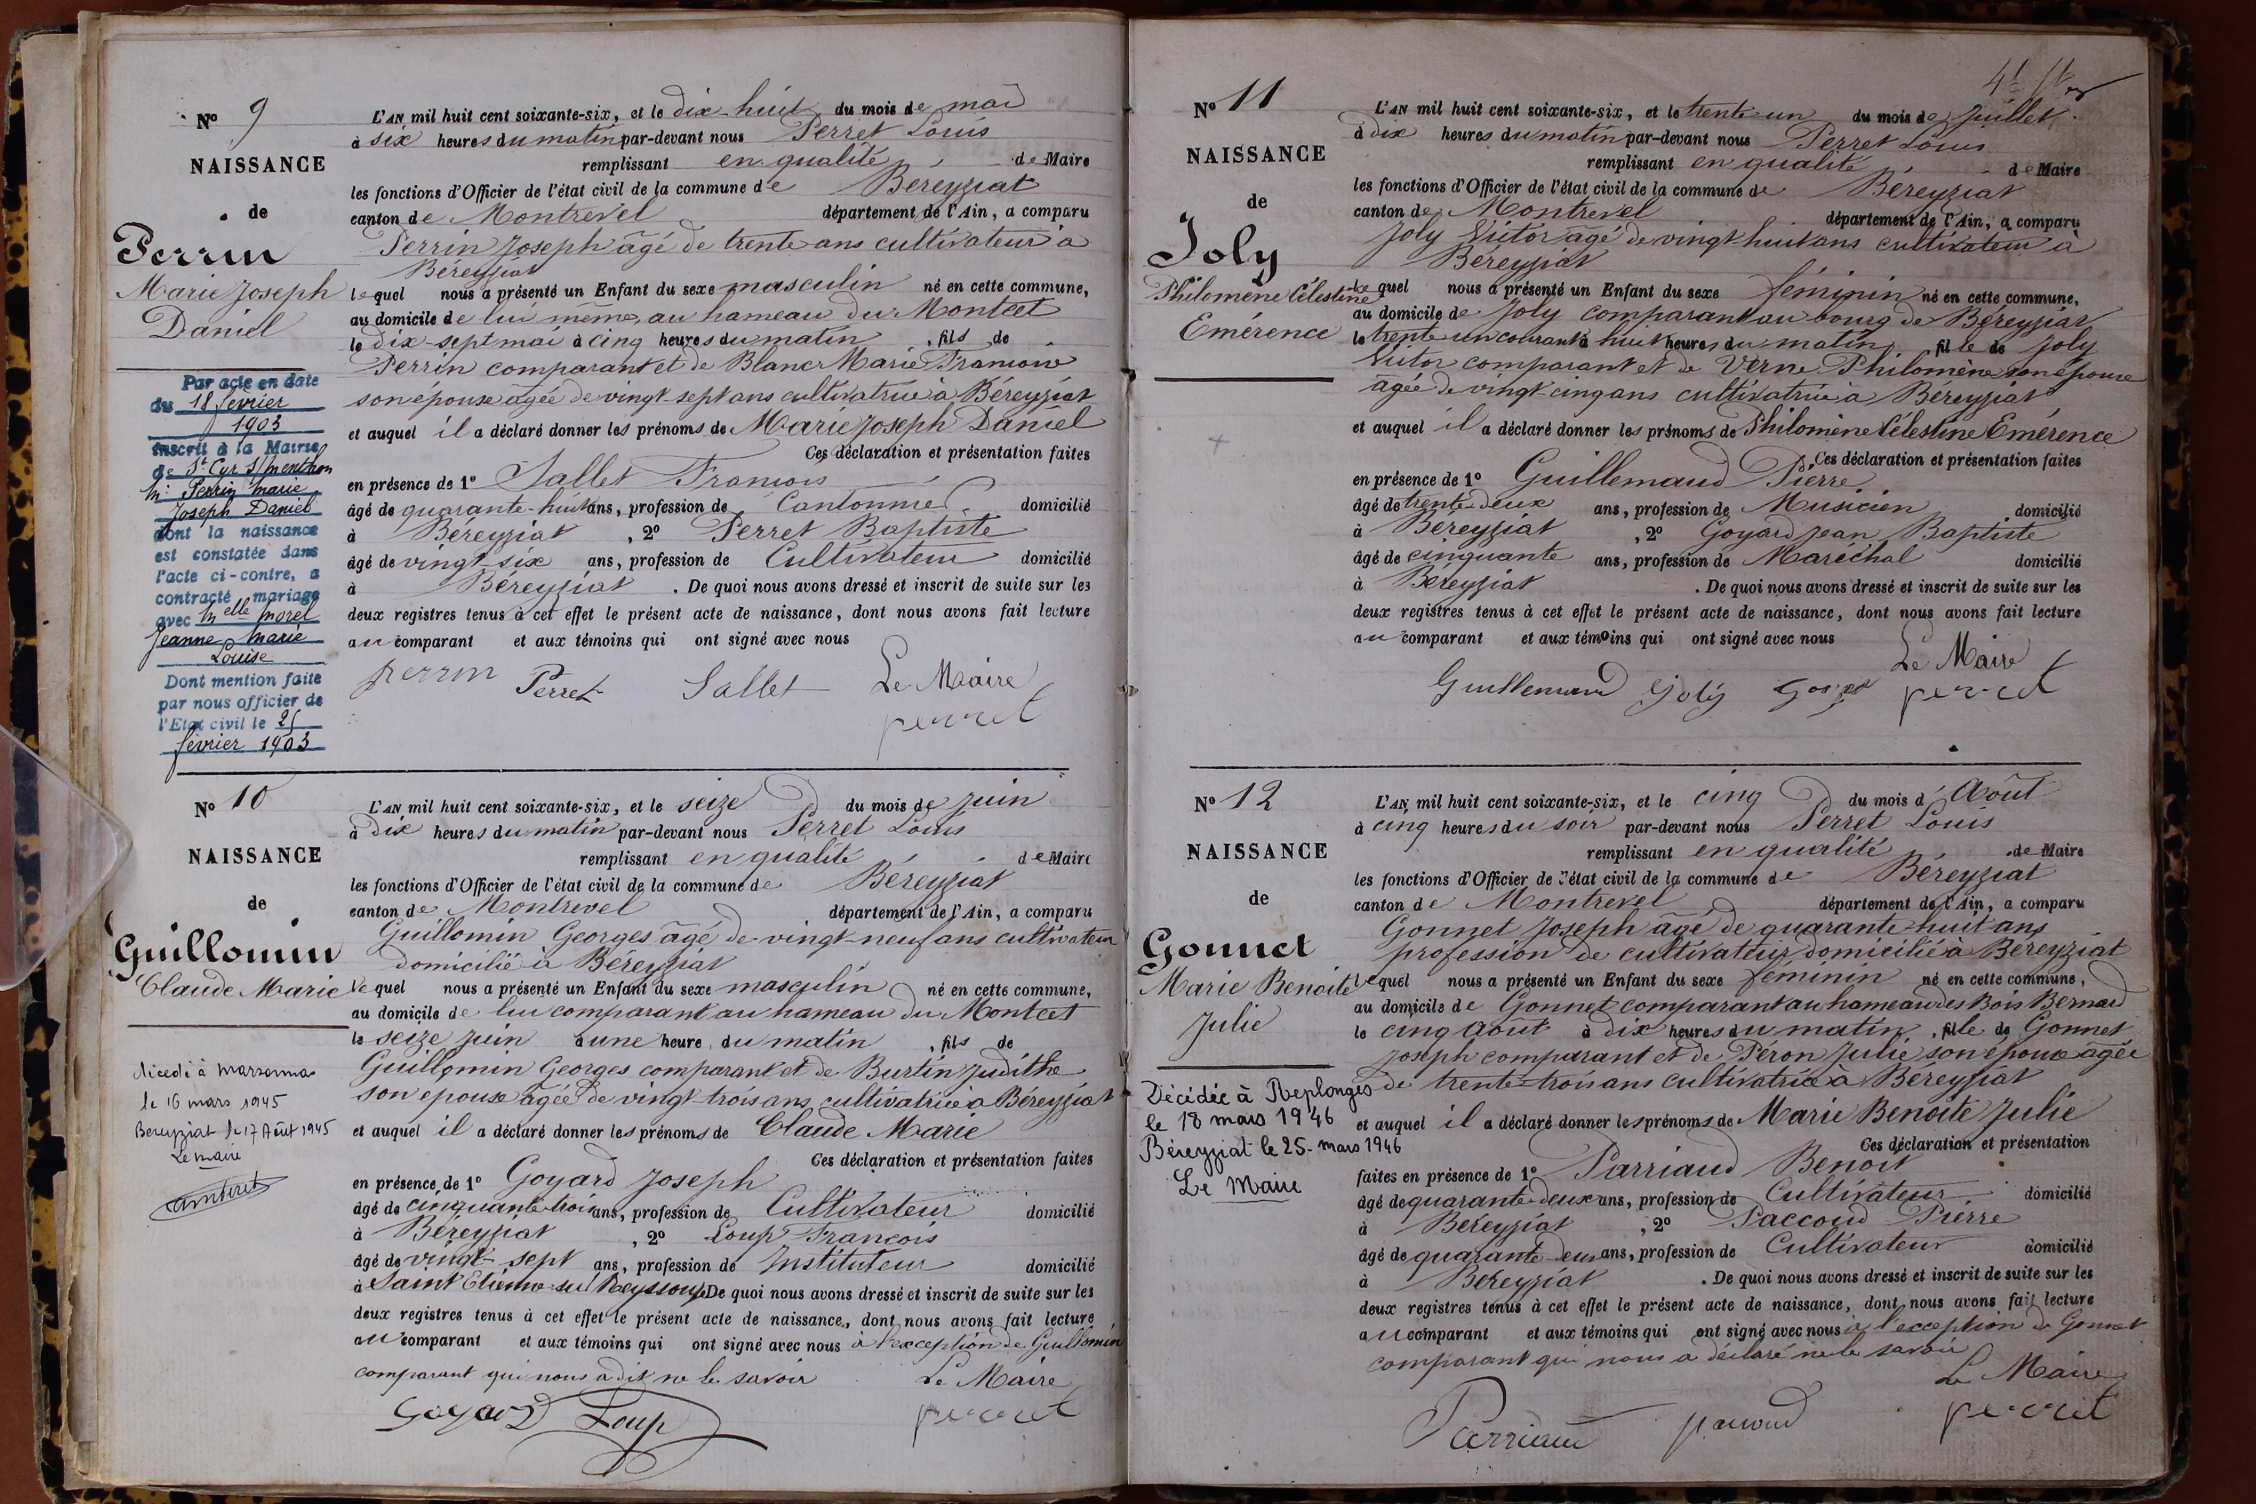 N° 9
NAISSANCE
de
Perrin
Marie Joseph
Daniel
Par acte en date
du 18 février
1903
inscrit à la Mairie
de St Cyr s/ menthon
Mr Perrin marie
Joseph Daniel
dont la naissance
est constatée dans
l'acte ci-contre, a
contracté mariage
avec Melle morel
Jeanne marie
Louise
Dont mention faite
par nous officier de
l'Etat civil le 25
février 1903
L'AN mil huit cent soixante-six, et le dix-huit du mois de mai
à six heures du matin par-devant nous Perret Louis
remplissant en qualité de Maire
les fonctions d'Officier de l'état civil de la commune de Béreyziat
canton de Montrevel département de l'Ain, a comparu
Perrin Joseph âgé de trente ans cultivateur à
Béreyziat
lequel nous a présenté un Enfant du sexe masculin né en cette commune,
au domicile de lui même au hameau du Montcet
le dix-sept mai à cinq heures du matin, fils de
Perrin comparant et de Blanc Marie Françoise
son épouse âgée de vingt-sept ans cultivatrice à Béreyziat
et auquel il a déclaré donner les prénoms de Marie Joseph Daniel
Ces déclaration et présentation faites
en présence de 1° Sallet François
âgé de quarante-huit ans, profession de Cantonnier domicilié
à Béreyziat, 2° Perret Baptiste
âgé de vingt-six ans, profession de Cultivateur domicilié
à Béreyziat. De quoi nous avons dressé et inscrit de suite sur les
deux registres tenus à cet effet le présent acte de naissance, dont nous avons fait lecture
au comparant et aux témoins qui ont signé avec nous
perrin Perret Sallet Le Maire
perret
N° 10
NAISSANCE
de
Guillomin
Claude Marie
décédé à Marsonnas
le 16 mars 1945
Bereyziat le 17 Août 1945
Le maire
L'AN mil huit cent soixante-six, et le seize du mois de juin
à dix heures du matin par-devant nous Perret Louis
remplissant en qualité de Maire
les fonctions d'Officier de l'état civil de la commune de Béreyziat
canton de Montrevel département de l'Ain, a comparu
Guillomin Georges âgé de vingt-neuf ans cultivateur
domicilié à Béreyziat
lequel nous a présenté un Enfant du sexe masculin né en cette commune,
au domicile de lui comparant au hameau du Montcet
le seize juin à une heure du matin, fils de
Guillomin Georges comparant et de Burtin Judithe
son épouse âgée de vingt-trois ans cultivatrice à Béreyziat
et auquel il a déclaré donner les prénoms de Claude Marie
Ces déclaration et présentation faites
en présence de 1° Goyard Joseph
âgé de cinquante trois ans, profession de Cultivateur domicilié
à Béreyziat, 2° Loup François
âgé de vingt-sept ans, profession de Instituteur domicilié
à Saint Etienne sur Reyssouze De quoi nous avons dressé et inscrit de suite sur les
deux registres tenus à cet effet le présent acte de naissance, dont nous avons fait lecture
au comparant et aux témoins qui ont signé avec nous à l'exception de Guillomin
comparant qui nous a dit ne le savoir Le Maire
Goyard Loup perret
N° 11
NAISSANCE
de
Joly
Philomène Célestine
Emérence
L'AN mil huit cent soixante-six, et le trente un du mois de juillet
à dix heures du matin par-devant nous Perret Louis
remplissant en qualité de Maire
les fonctions d'Officier de l'état civil de la commune de Béreyziat
canton de Montrevel département de l'Ain, a comparu
Joly Victor âgé de vingt huit ans cultivateur à
Béreyziat
lequel nous a présenté un Enfant du sexe féminin né en cette commune,
au domicile de Joly comparant au bourg de Béreyziat
le trente un courant à huit heures du matin, fille de Joly
Victor comparant et de Verne Philomène son épouse
âgée de vingt-cinq ans cultivatrice à Béreyziat
et auquel il a déclaré donner les prénoms de Philomène Célestine Emérence
Ces déclaration et présentation faites
en présence de 1° Guillemaud Pierre
âgé de trente-deux ans, profession de Musicien domicilié
à Béreyziat, 2° Goyard Jean Baptiste
âgé de cinquante ans, profession de Maréchal domicilié
à Béreyziat. De quoi nous avons dressé et inscrit de suite sur les
deux registres tenus à cet effet le présent acte de naissance, dont nous avons fait lecture
au comparant et aux témoins qui ont signé avec nous
Le Maire
Guillemaud Joly Goyard perret
N° 12
NAISSANCE
de
Gonnet
Marie Benoite
Julie
Décédée à Replonges
le 18 mars 1946
Béreyziat le 25 mars 1946
Le Maire
L'AN mil huit cent soixante-six, et le cinq du mois d'Août
à cinq heures du soir par-devant nous Perret Louis
remplissant en qualité de Maire
les fonctions d'Officier de l'état civil de la commune de Béreyziat
canton de Montrevel département de l'Ain, a comparu
Gonnet Joseph âgé de quarante-huit ans
profession de cultivateur domicilié à Béreyziat
lequel nous a présenté un Enfant du sexe féminin né en cette commune,
au domicile de Gonnet comparant au hameau des Bois Bernard
le cinq Août à dix heures du matin, fille de Gonnet
Joseph comparant et de Péron Julie son épouse âgée
de trente-trois ans cultivatrice à Béreyziat
et auquel il a déclaré donner les prénoms de Marie Benoite Julie
Ces déclaration et présentation
faites en présence de 1° Parriaud Benoit
âgé de quarante-deux ans, profession de Cultivateur domicilié
à Béreyziat, 2° Paccoud Pierre
âgé de quarante-deux ans, profession de Cultivateur domicilié
à Béreyziat. De quoi nous avons dressé et inscrit de suite sur les
deux registres tenus à cet effet le présent acte de naissance, dont nous avons fait lecture
au comparant et aux témoins qui ont signé avec nous à l'exception de Gonnet
comparant qui nous a déclaré ne le savoir
Le Maire
Parriaud paccoud perret